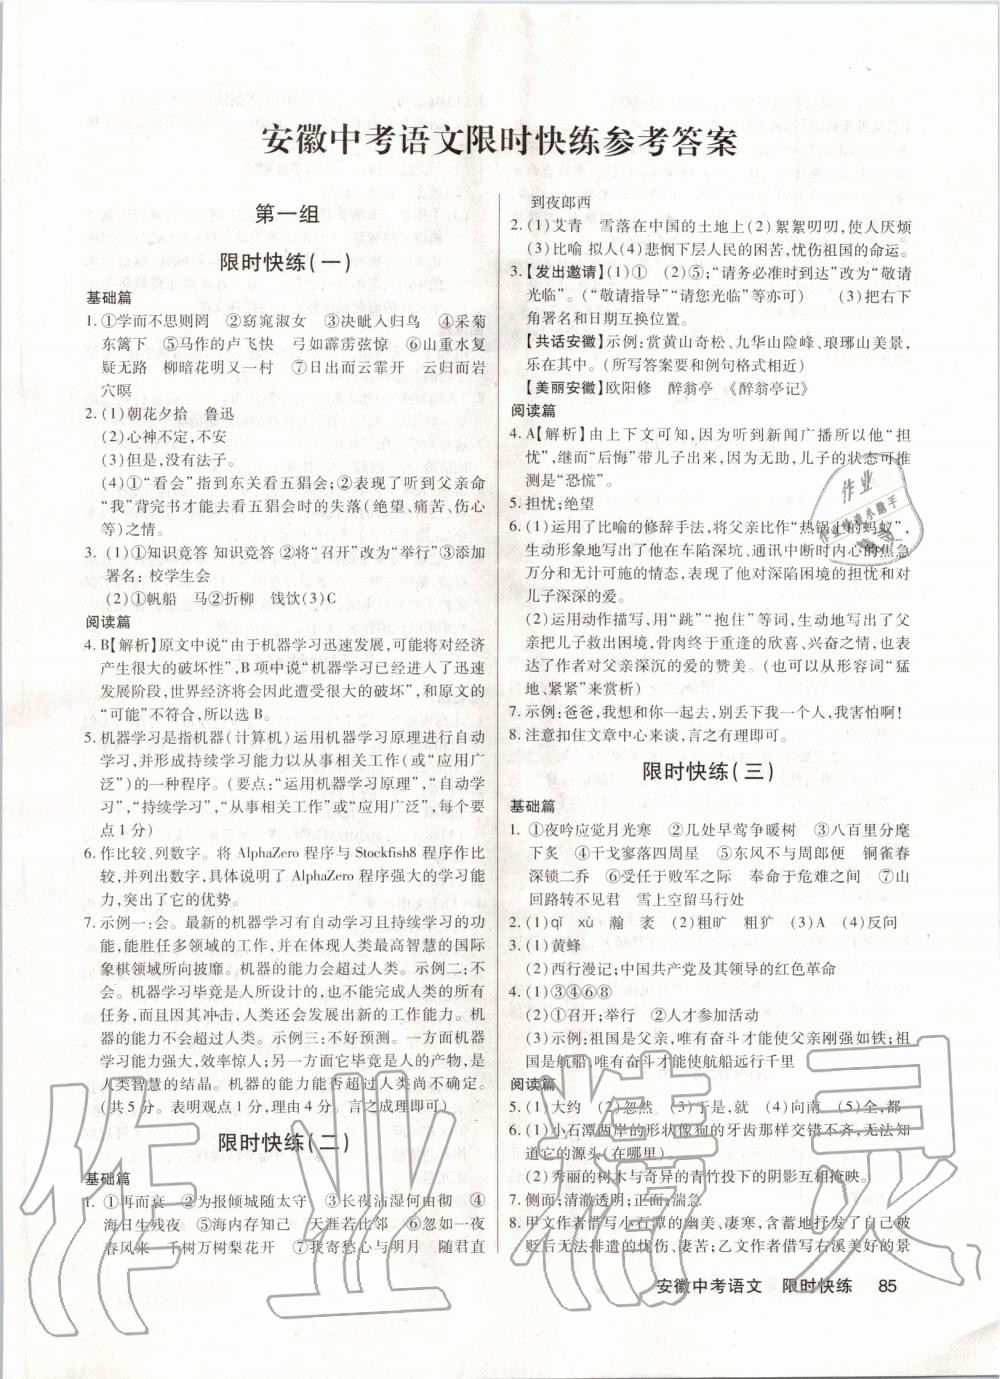 安徽中考语文限时快练参考答案
第一组
限时快练(一)
基础篇
1. ①学而不思则罔 ②窈窕淑女 ③决眦入归鸟 ④采菊
东篱下 ⑤马作的卢飞快 弓如霹雳弦惊 ⑥山重水复
疑无路 柳暗花明又一村 ⑦日出而云霏开 云归而岩
穴暝
2. (1)朝花夕拾 鲁迅
(2)心神不定,不安
(3)但是,没有法子。
(4)①“看会”指到东关看五猖会;②表现了听到父亲命
“我”背完书才能去看五猖会时的失落(绝望、痛苦、伤心
等)之情。
3. (1)①知识竞答 知识竞答 ②将“召开”改为“举行”③添加
署名: 校学生会
(2)①帆船 马②折柳 饯饮(3)C
阅读篇
4. B【解析】原文中说“由于机器学习迅速发展,可能将对经济
产生很大的破坏性”,B项中说“机器学习已经进入了迅速
发展阶段,世界经济将会因此遭受很大的破坏”,和原文的
“可能”不符合,所以选B。
5. 机器学习是指机器(计算机)运用机器学习原理进行自动
学习,并形成持续学习能力以从事相关工作(或“应用广
泛”)的一种程序。(要点:“运用机器学习原理”,“自动学
习”,“持续学习”,“从事相关工作”或“应用广泛”,每个要
点1分)
6. 作比较,列数字。将AlphaZero程序与Stockfish8程序作比
较,并列出数字,具体说明了AlphaZero程序强大的学习能
力,突出了它的优势。
7. 示例一:会。最新的机器学习有自动学习且持续学习的功
能,能胜任多领域的工作,并在体现人类最高智慧的国际
象棋领域所向披靡。机器的能力会超过人类。示例二:不
会。机器学习毕竟是人所设计的,也不能完成人类的所有
工作,而且因其冲击,人类还会发展出新的工作能力。机
器的能力不会超过人类。示例三:不好预测。一方面机器
学习能力强大,效率惊人;另一方面它毕竟是人的产物,是
人类智慧的结晶。机器的能力能否超过人类尚不确定。
(共5分。表明观点1分,理由4分。言之成理即可)
限时快练(二)
基础篇
1. ①再而衰 ②为报倾城随太守 ③长夜沾湿何由彻 ④
海日生残夜 ⑤海内存知己 天涯若比邻 ⑥忽如一夜
春风来 千树万树梨花开 ⑦我寄愁心与明月 随君直
到夜郎西
2. (1)艾青 雪落在中国的土地上(2)絮絮叨叨,使人厌烦
(3)比喻 拟人(4)悲悯下层人民的困苦,忧伤祖国的命运。
3.【发出邀请】(1)① (2)⑤;“请务必准时到达”改为“敬请
光临”。(“敬请指导”“请您光临”等亦可) (3)把右下
角署名和日期互换位置。
【共话安徽】示例:赏黄山奇松、九华山险峰、琅琊山美景,
乐在其中。(所写答案要和例句格式相近)
【美丽安徽】欧阳修 醉翁亭 《醉翁亭记》
阅读篇
4. A【解析】由上下文可知,因为听到新闻广播所以他“担
忧”,继而“后悔”带儿子出来,因为无助,儿子的状态可推
测是“恐慌”。
5. 担忧;绝望
6. (1)运用了比喻的修辞手法,将父亲比作“热锅上的蚂蚁”,
生动形象地写出了他在车陷深坑、通讯中断时内心的焦急
万分和无计可施的情态,表现了他对深陷困境的担忧和对
儿子深深的爱。
(2)运用动作描写,用“跳”“抱住”等词,生动地写出了父
亲把儿子救出困境,骨肉终于重逢的欣喜、兴奋之情,也表
达了作者对父亲深沉的爱的赞美。(也可以从形容词“猛
地、紧紧”来赏析)
7. 示例:爸爸,我想和你一起去,别丢下我一个人,我害怕啊!
8. 注意扣住文章中心来谈,言之有理即可。
限时快练(三)
基础篇
1. ①夜吟应觉月光寒 ②几处早莺争暖树 ③八百里分麾
下炙 ④干戈寥落四周星 ⑤东风不与周郎便 铜雀春
深锁二乔 ⑥受任于败军之际 奉命于危难之间 ⑦山
回路转不见君 雪上空留马行处
2. (1)qǐ xù 瀚 袤 (2)粗旷 粗犷 (3)A (4)反问
3. (1)黄蜂
(2)西行漫记;中国共产党及其领导的红色革命
4. (1)③④⑥⑧
(2)①召开;举行 ②人才参加活动
(3)示例:祖国是父亲,唯有奋斗才能使父亲刚强如铁;祖
国是航船,唯有奋斗才能使航船远行千里
阅读篇
5. (1)大约 (2)忽然 (3)于是,就 (4)向南 (5)全,都
6. (1)小石潭两岸的形状像狗的牙齿那样交错不齐,无法知
道它的源头(在哪里)
(2)秀丽的树木与奇异的青竹投下的阴影互相掩映。
7. 侧面;清澈透明;正面;湍急
8. 甲文作者借写小石潭的幽美、凄寒,含蓄地抒发了自己被
贬后无法排遣的忧伤、凄苦;乙文作者借写右溪美好的景
安徽中考语文 限时快练 85
作业精灵